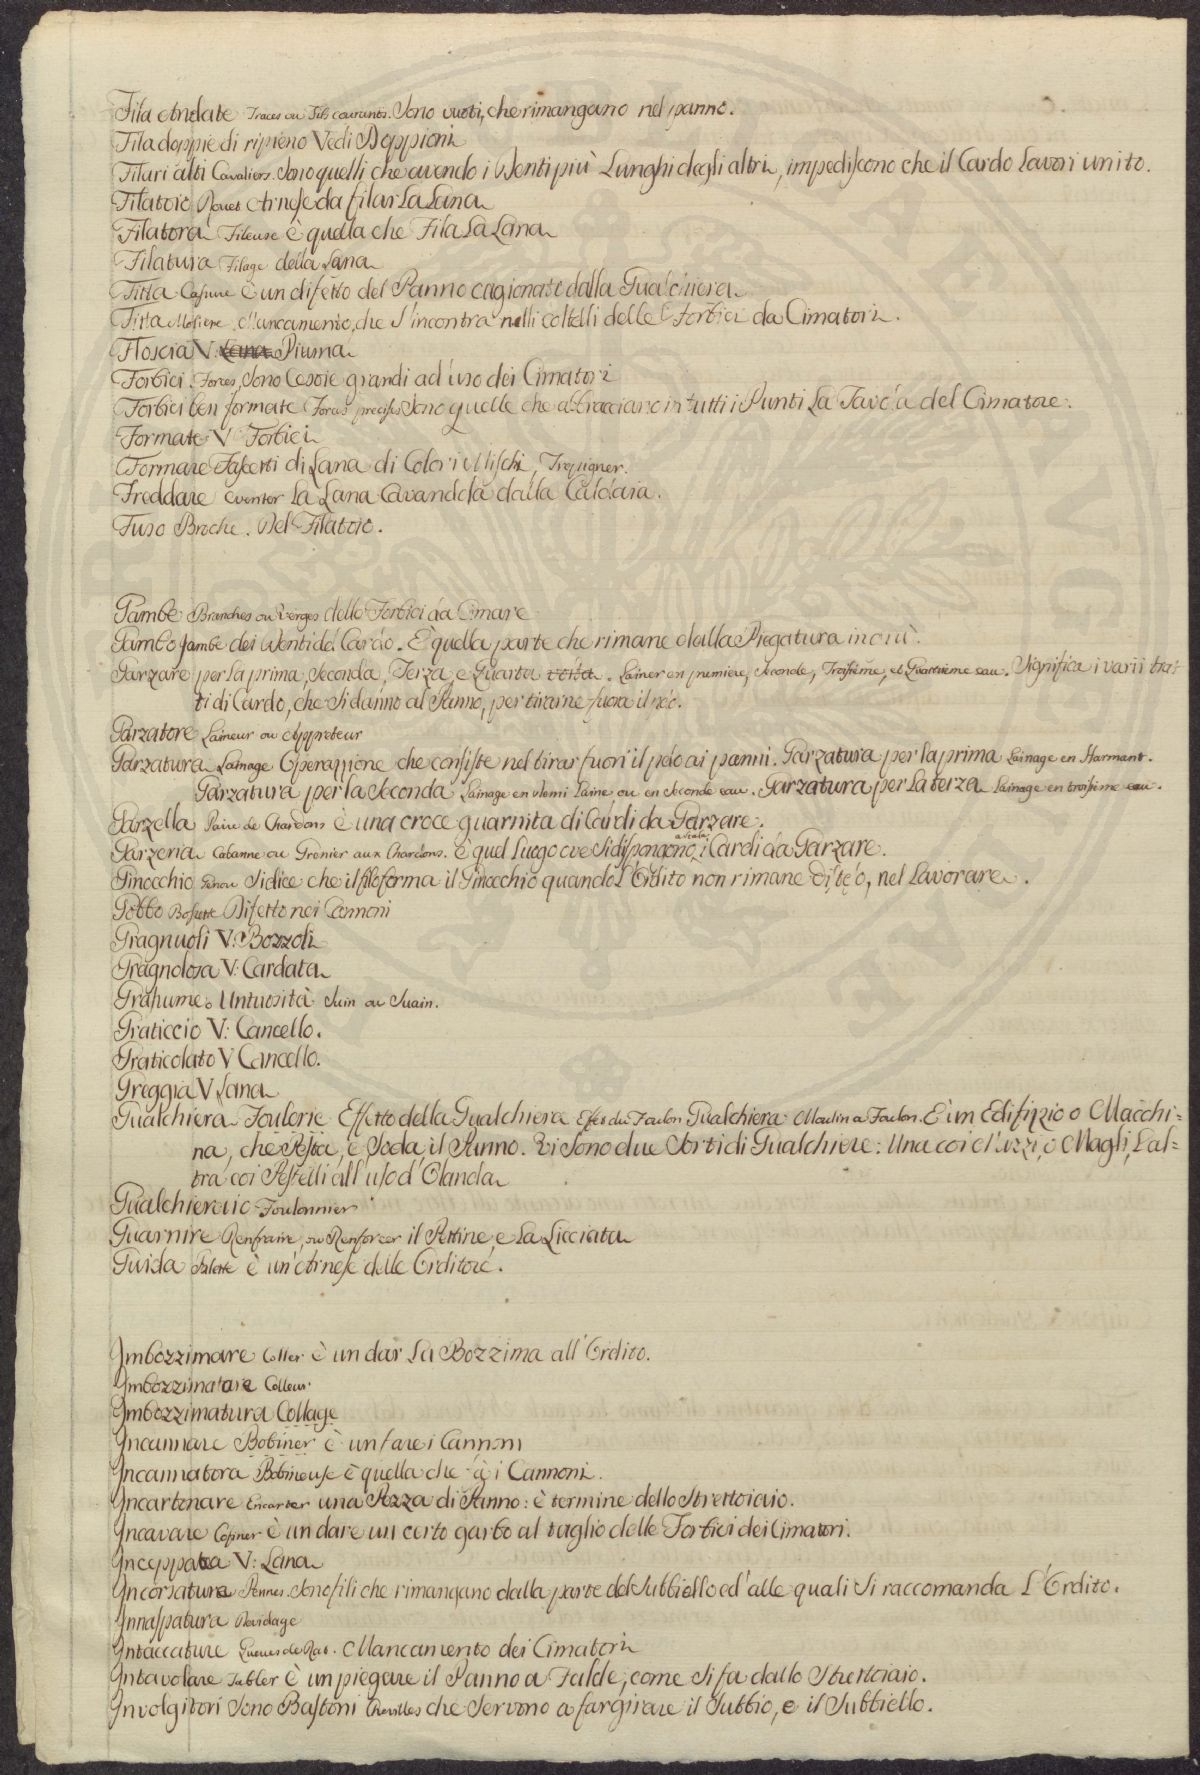 Fila Andate Traces ou Fils courants. Sono vuoti, che rimangano nel panno.
Fila doppie di ripieno Vedi Doppioni
Filari alti Cavaliers. Sono quelli che avendo i Denti più Lunghi degli altri, impediscono che il Cardo Lavori unito.
Filatoio Rouet Arnese da filar La Lana
Filatora Fileuse è quella che Fila La Lana
Filatura Filage della Lana
Fitta Casure è un difetto del Panno cagionato dalla Gualchiera
Fitta Molière Mancamento, che S'incontra nelli coltelli delle Forbici da Cimatori.
Floscia V: Piuma
Forbici. Forces, Sono Cesoie grandi ad uso dei Cimatori
Forbici ben formate Forces precises Sono quelle che abbracciano in tutti i Punti La Tavola del Cimatore.
Formate V Forbici
Formare Fascetti di Lana di Colori Mischi, Trepigner.
Freddare eventer La Lana Cavandola dalla Caldaia.
Fuso Broche. Del Filatoio.
Gambe Branches ou Verges delle Forbici da Cimare
Gambo Jambe dei Denti del Cardo. È quella parte che rimane dalla Piegatura in giù.
Garzare per La prima, Seconda, Terza, e Quarta volta. Lainer en premiere, Seconde, Troisième, et Quatrieme eau. Significa i varii trat-
ti di Cardo, che Si danno al Panno, per tirarne fuora il pelo.
Garzatore Laineur ou Appreteur
Garzatura Lainage Operazzione che consiste nel tirar fuori il pelo ai panni. Garzatura per la prima Lainage en Harmant.
Garzatura per la Seconda Lainage en demi Laine ou en Seconde eau. Garzatura per La terza Lainage en troisieme eau.
Garzella Paire de Chardons è una croce guarnita di Cardi da Garzare.
Garzeria Cabanne ou Grenier aux Chardons. è quel Luogo ove Si dispongono a Scala i Cardi da Garzare.
Ginocchio Genou Si dice che il filo forma il Ginocchio quando L'Ordito non rimane disteso, nel Lavorare.
Gobbo Bossette Difetto nei Cannoni
Gragnuoli V: Bozzoli
Gragnolosa V: Cardata
Grassume o Untuosità Suin ou Suain.
Graticcio V: Cancello.
Graticolato V Cancello.
Greggia V Lana
Gualchiera Foulerie Effetto della Gualchiera Effet du Foulon Gualchiera Moulin a Foulon. È un Edifizio o Macchi=
na, che Pesta, e Soda, il Panno. Vi Sono due Sorti di Gualchiere: Una coi Mazzi, o Magli, L'al=
tra coi Pestelli all'uso d'Olanda
Gualchieraio Foulonnier
Guarnire Renfraire, ou Renforcer il Pettine, e La Licciata
Guida Palette è un'Arnese delle Orditore.
Imbozzimare Coller è un dar La Bozzima all'Ordito.
Imbozzimatore Colleur
Imbozzimatura Collage
Incannare Bobiner è un fare i Cannoni
Incannatora Bobineuse è quella che fa i Cannoni.
Incartonare Encarter una Pezza di Panno: è termine dello Strettoiaio.
Incavare Copiner è un dare un certo garbo al taglio delle Forbici dei Cimatori.
Inceppata V: Lana
Incorsatura Pennes. Sono fili che rimangano dalla parte del Subbiello ed'alle quali Si raccomanda L'Ordito.
Innaspatura Devidage
Intaccature Queues de Rat. Mancamento dei Cimatori
Intavolare Tabler è un piegare il Panno a Falde, come Si fa dallo Strettoiaio.
Involgitori Sono Bastoni Chevilles che Servono a far girare il Subbio, e il Subbiello.